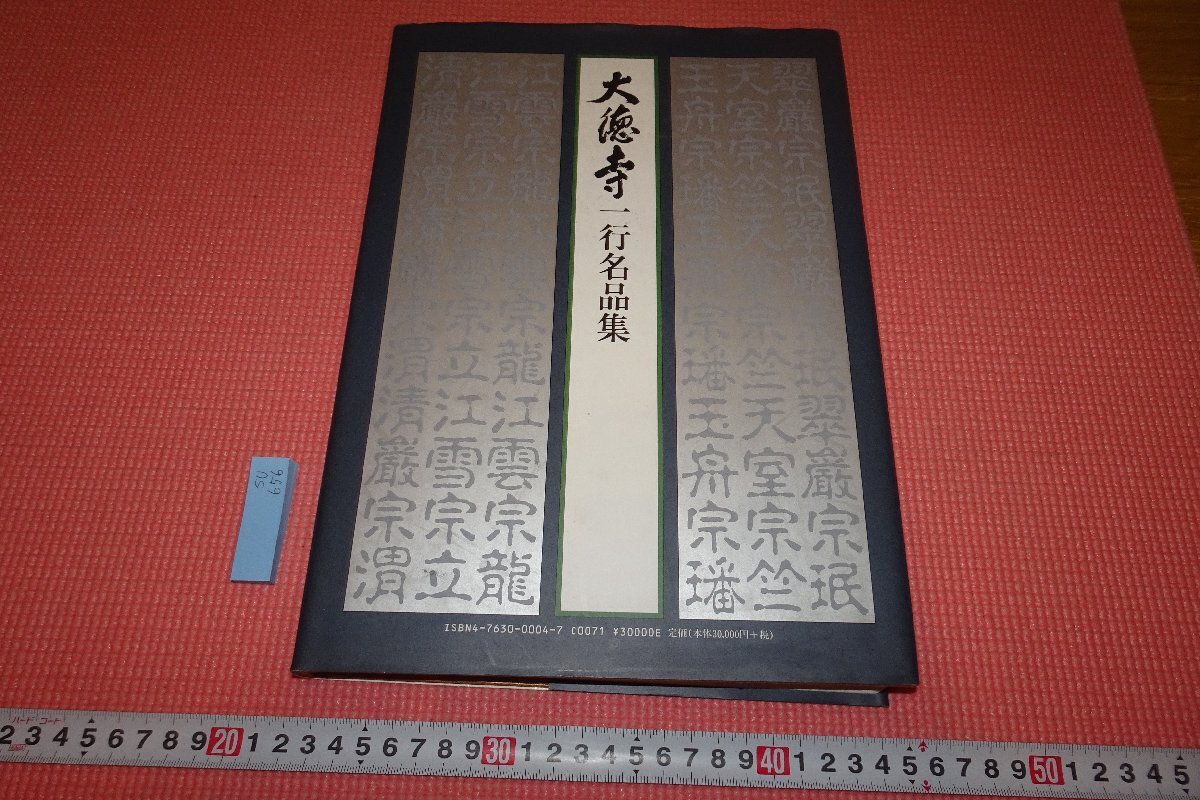 大徳寺一行名品集
翠巖宗珉翠巖
珉翠巖宗珉
天室宗竺天
宗竺天室宗竺
玉舟宗
宗璠玉舟宗璠
江雲宗龍
宗龍江雲宗龍
江雪宗立
宗立江雪宗立
清巖宗渭
渭清巖宗渭
ISBN4-7630-0004-7 C0071 ¥30000E 定価(本体30,000円+税)
959
US
ハード コート
2 3 4 5 6 7 8 9 20 1 2 3 4 5 6 7 8 9 30 1 2 3 4 5 6 7 8 9 40 1 2 3 4 5 6 7 8 9 50 1 2 3 4 5